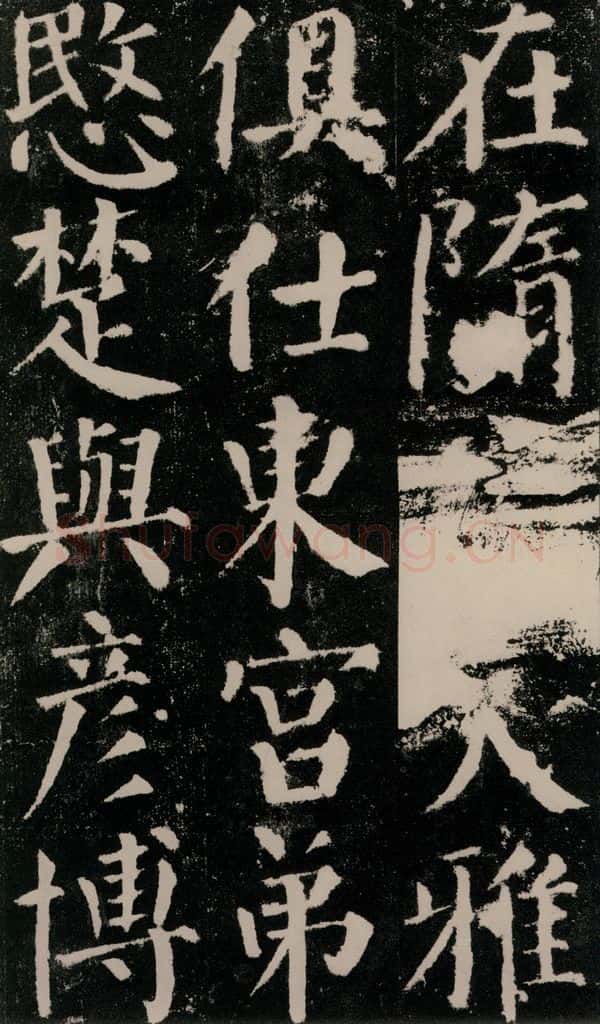 在隋大雅
俱仕東宮弟
愍楚與彥博
shufawang.CN